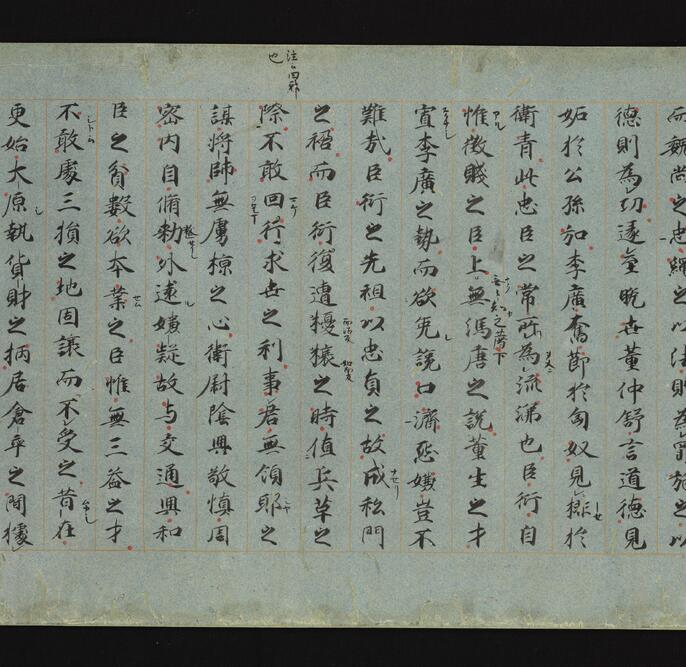 而魏尚之忠繩之以法則為罪施之以
德則為功逮至晚世董仲舒言道德見
妬於公孫弘李廣奮節於匈奴見排於
衛青此忠臣之常所為流涕也臣衍自
惟微賤之臣上無無知之薦下馮唐之說董生之才
寡李廣之執而欲免讒口濟怨嫌豈不
難哉臣衍之先祖以忠貞之故成私門
之禍而臣衍復遭擾攘之時值兵革之
注云回邪也
際不敢回行求世之利事君無傾邪之
謀將帥無虜掠之心衛尉陰興敬慎周
密内自脩勑外遠嫌疑故与交通興知
臣之貧數欲本業之臣惟無三益之才
不敢處三損之地固讓而不受之昔在
更始大原執貨財之柄居倉卒之間據